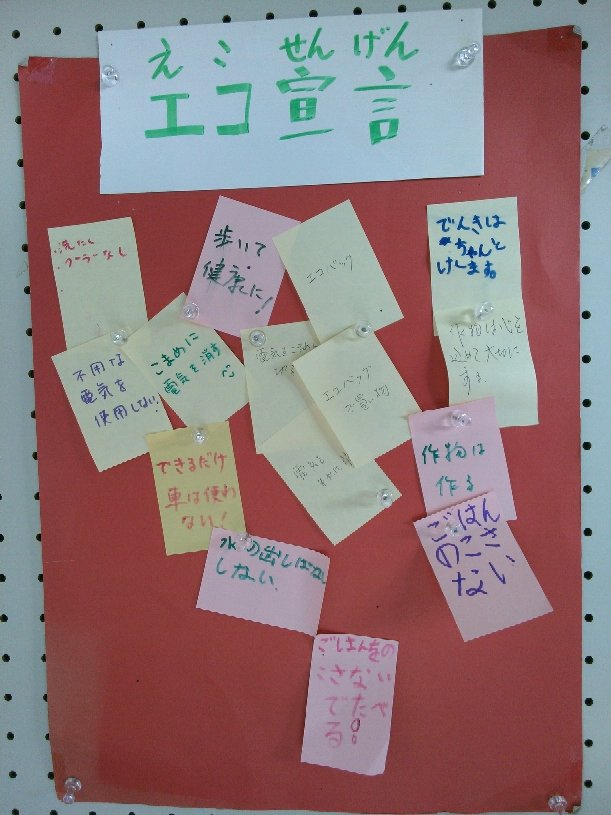 えこ せんげん
エコ宣言
クーラーなし
歩いて
健康に!
エコバック
でんきは
ちゃんと
けします。
不用な
電気を
使用しない!
こまめに
電気を消す
エコバッグ
で買い物
作物は心を
込めて大切に
する
できるだけ
車は使わ
ない!
電気を
作物は
作る
ごはん
のこさ
ない
水の出しぱなし
しない.
ごはんをの
こさない
でたべ
る!